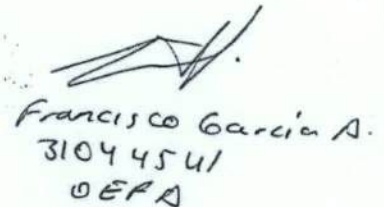 Francisco García A.
31044541
OEFA